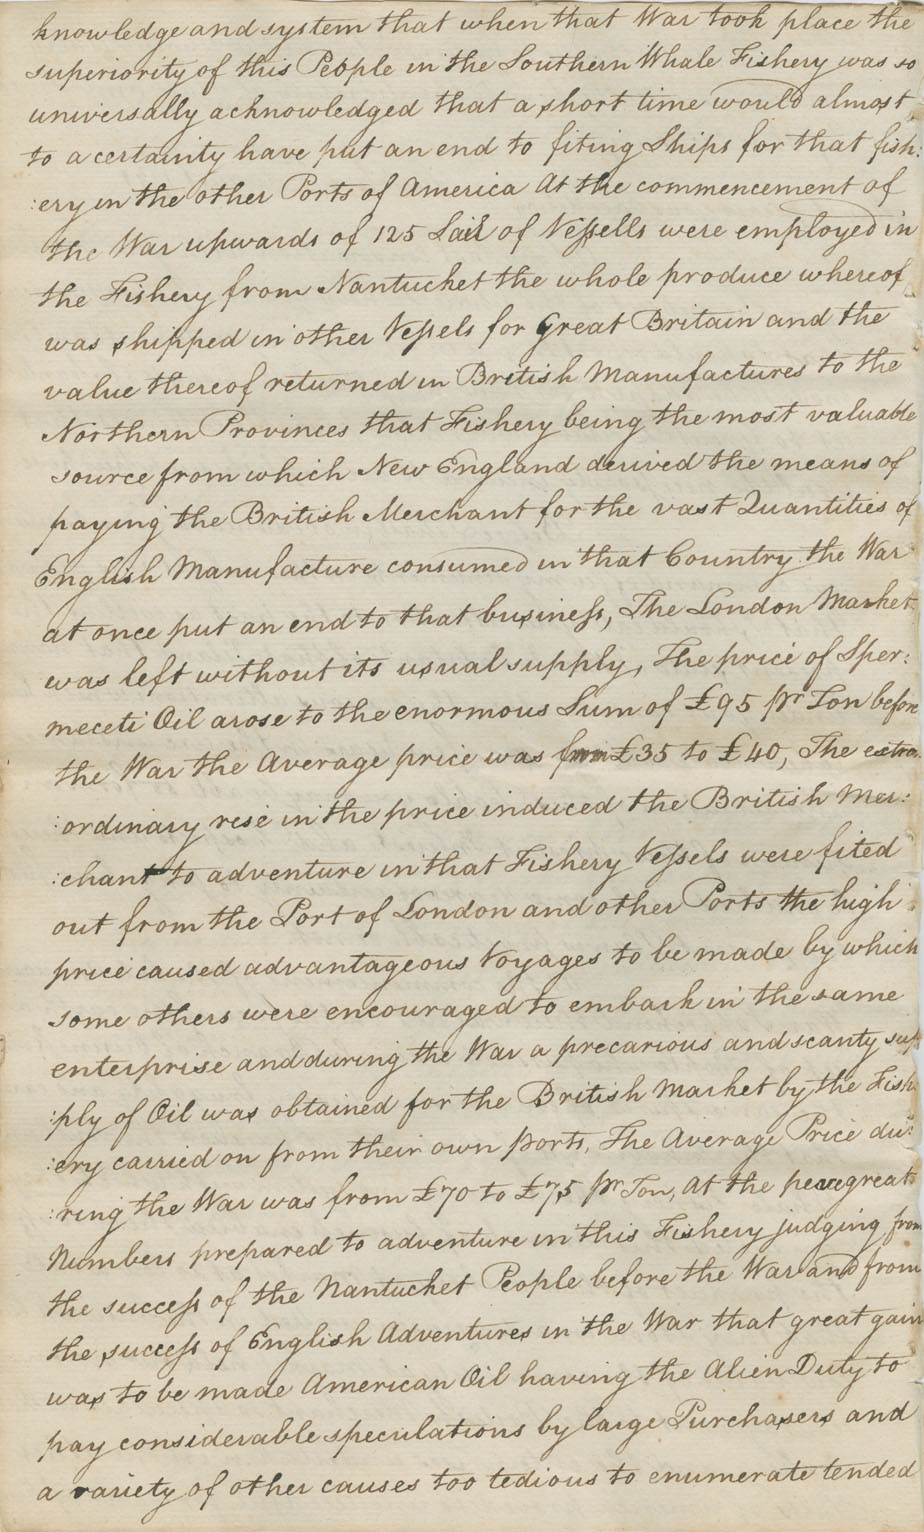 knowledge and system that when that War took place the
superiority of this People in the Southern Whale Fishery was so
universally acknowledged that a short time would almost
to a certainity have put an end to fiting Ships for that fish:
:ery in the other Ports of America At the commencement of
the War upwards of 125 Sail of Veſsells were employed in
the Fishery from Nantucket the whole produce whereof
was shipped in other Veſsels for Great Britain and the
value thereof returned in British Manufactures to the
Northern Provinces that Fishery being the most valuable
source from which New England derived the means of
paying the British Merchant for the vast Quantities of
English Manufacture consumed in that Country the War
at once put an end to that busineſs, The London Market
was left without its usual supply, The price of Sper:
meceti Oil arose to the enormous Sum of £95 pr Ton before
the War the Average price was from £35 to £40, The extra
:ordinary rise in the price induced the British Mer:
:chant to adventure in that Fishery Veſsels were fited
out from the Port of London and other Ports the high
price caused advantageous Voyages to be made by which
some others were encouraged to embark in the same
enterprise and during the War a precarious and scanty sup
:ply of Oil was obtained for the British Market by the Fish
:ery carried on from their own ports, The Average Price du:
:ring the War was from £70 to £75 pr Ton, At the peace great
Numbers prepared to adventure in this Fishery judging from
the succeſs of the Nantucket People before the War and from
the succeſs of English Adventures in the War that great gain
was to be made American Oil having the Alien Duty to
pay considerable speculations by large Purchasers and
a variety of other causes too tedious to enumerate tended